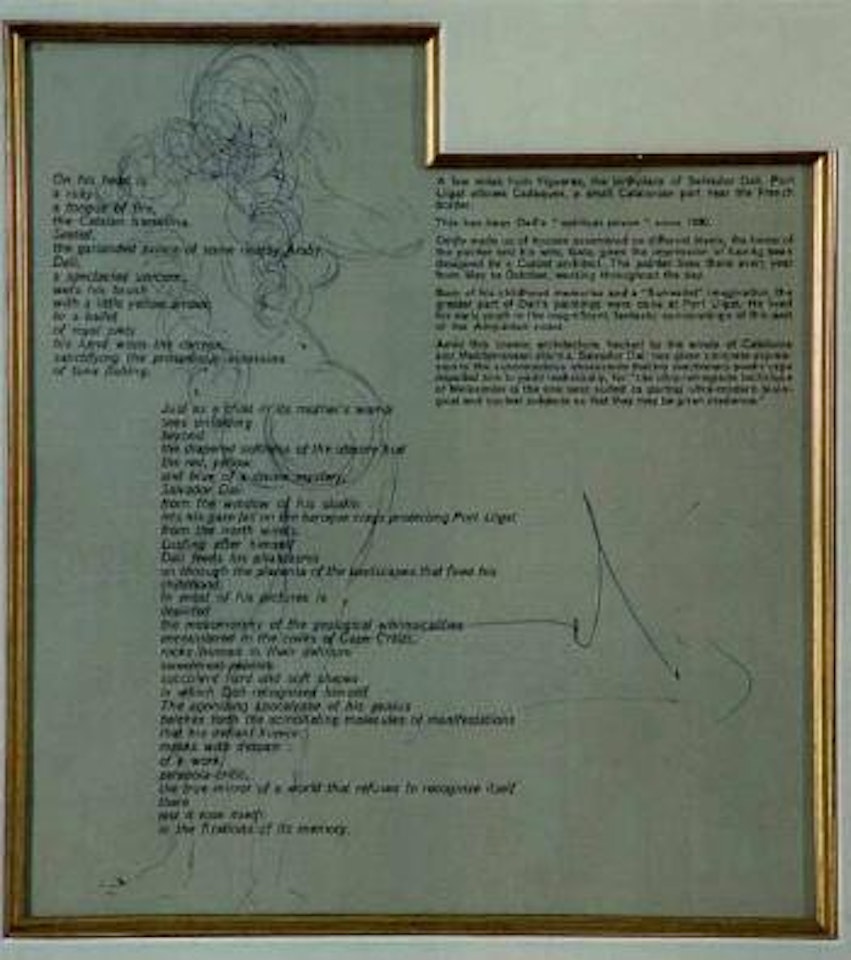 On his head is
a ruby,
a tongue of fire,
the Catalan barretina.
Seated,
the garlanded prince of some nearby Araby
Dali,
a spectacled unicorn,
wets his brush
with a little yellow
to a ballet
of royal jelly
his hand
sanctifying the
of tuna fishing.
Just as a child in its mother's womb
sees unfolding
beyond
the diapered softness of the
the red, yellow
and blue of a divine mystery,
Salvador Dali
from the window of his studio
lets his gaze fall on the baroque crags protecting Port Lligat
from the north winds.
Lusting after himself
Dali feeds his phantasms
on through the placenta of the landscapes that fixed his
childhood.
In most of his pictures is
depicted
the metamorphy of the geological whimsicalities
encountered in the coves of Cape Creus,
rocks frozen in their delirium
succulent hard and soft shapes
in which Dali recognised himself
The agonising apocalypse of his genius
belches forth the scintillating molecules of manifestations
that his defiant humor
masks with
of a work,
paranoia-critic,
the true mirror of a world that refuses to recognize itself
there
lest it lose itself
in the fixations of its memory.
A few miles from Figueras, the birthplace of Salvador Dali, Port
Lligat allows Cadaques, a small Catalonian port near the French
border.
This has been Dali's "spiritual prison" since
Oddly made up of houses assembled on different levels, the home of
the painter and his wife, Gala, gives the impression of having been
designed by a Cubist architect. The painter lives there every year
from May to October, working throughout the day.
Born of his childhood memories and a "Surrealist" imagination, the
greater part of Dali's paintings were done at Port Lligat. He lived
his early youth in the magnificent fantastic surroundings of this part
of the Ampurdan coast.
Amid this cosmic architecture, hacked by the winds of Catalonia
and Mediterranean storms, Salvador Dali has given concrete
to the subconscious obsessions that his
impelled him to paint meticulously, for "the ultra-retrograde technique
of Meissonier is the one best suited to
and nuclear subjects so that they may be given credence."